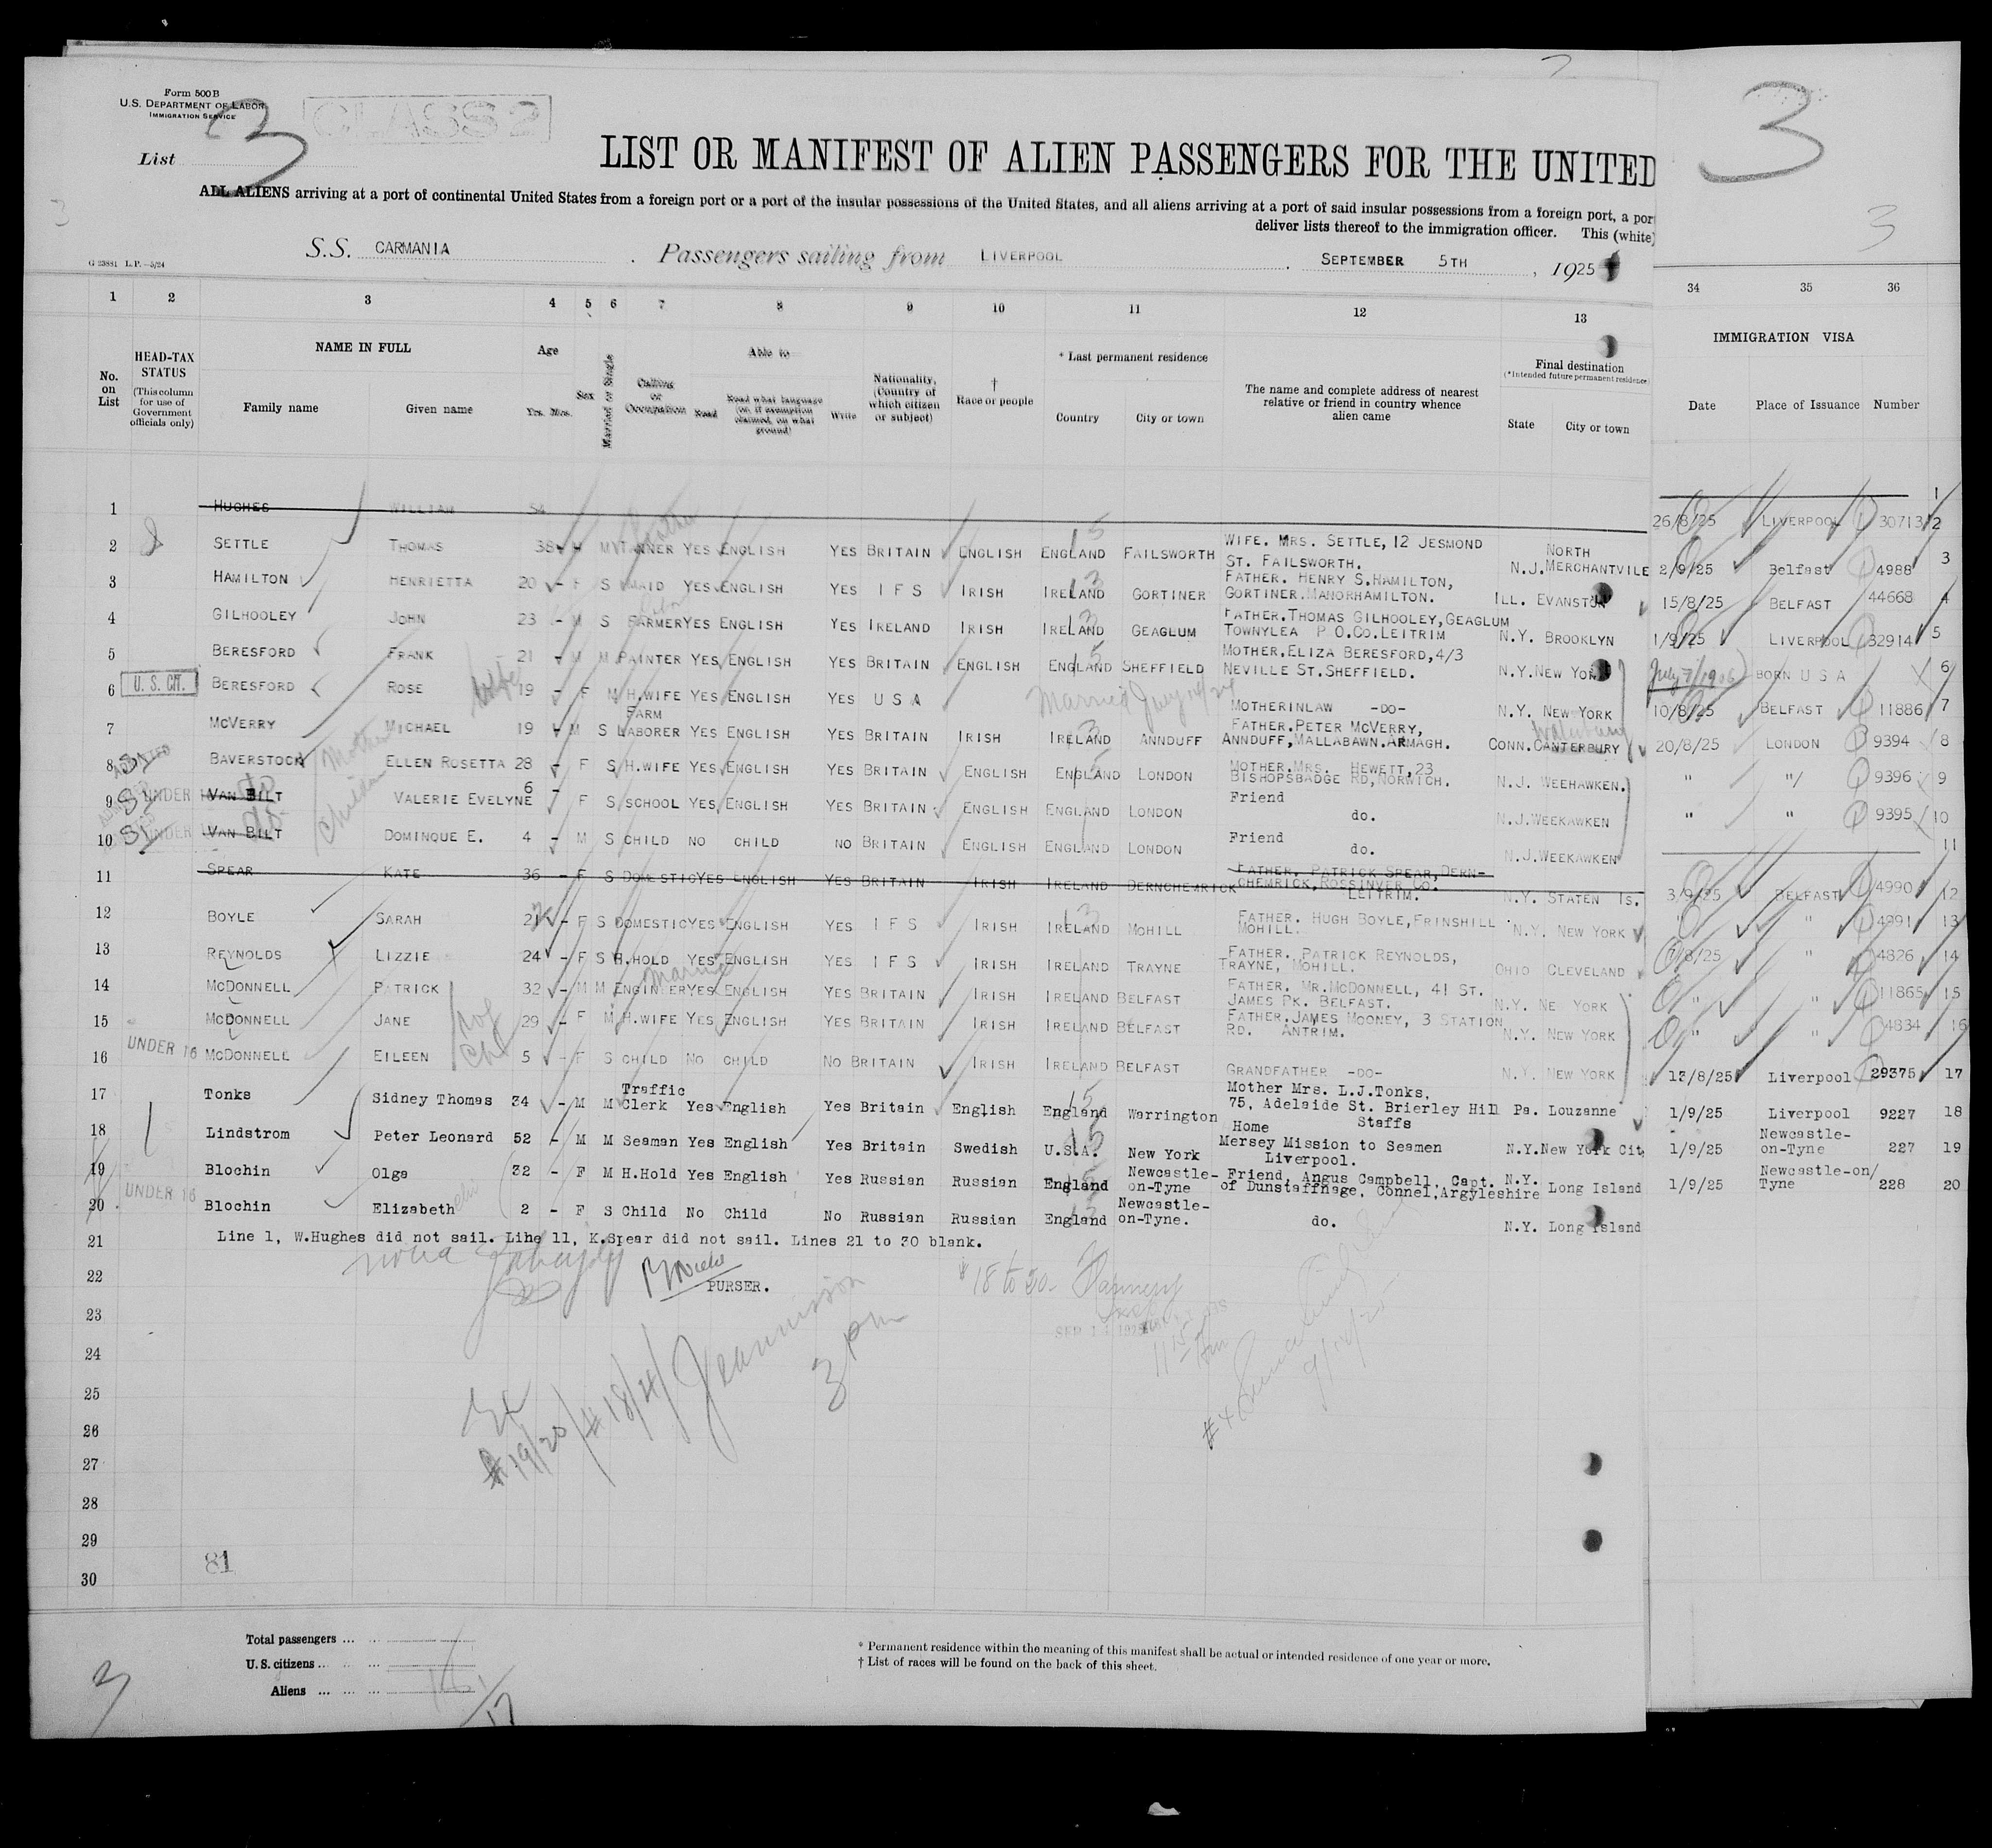 Form 500B
U.S. DEPARTMENT OF LABOR
IMMIGRATION SERVICE
CLASS 2
3
3
List
LIST OR MANIFEST OF ALIEN PASSENGERS FOR THE UNITED
ALL ALIENS arriving at a port of continental United States from a foreign port or a port of the insular possessions of the United States, and all aliens arriving at a port of said insular possessions from a foreign port, a por
deliver lists thereof to the immigration officer. This (white)
3
S.S. CARMANIA . Passengers sailing from LIVERPOOL . SEPTEMBER 5TH , 1925
G 23881 L.P.—5/24
1 2 3 4 5 6 7 8 9 10 11 12 13 34 35 36
No. on List
HEAD-TAX STATUS
(This column for use of Government officials only)
NAME IN FULL
Family name Given name
Age
Yrs. Mos.
Sex
Married or Single
Calling or Occupation
Able to
Read
Read what language (or, if exemption claimed, on what ground)
Write
Nationality. (Country of which citizen or subject)
† Race or people
* Last permanent residence
Country City or town
The name and complete address of nearest relative or friend in country whence alien came
Final destination
(*Intended future permanent residence)
State City or town
IMMIGRATION VISA
Date Place of Issuance Number
1 HUGHES WILLIAM 54 1
2 SETTLE THOMAS 38 M M TANNER YES ENGLISH YES BRITAIN ENGLISH ENGLAND FAILSWORTH WIFE. MRS. SETTLE, 12 JESMOND ST. FAILSWORTH. N.J. NORTH MERCHANTVILE 26/8/25 LIVERPOOL 30713 2
3 HAMILTON HENRIETTA 20 - F S MAID YES ENGLISH YES I F S IRISH IRELAND GORTINER FATHER. HENRY S.HAMILTON, GORTINER.MANORHAMILTON. ILL. EVANSTON 2/9/25 Belfast 4988 3
4 GILHOOLEY JOHN 23 - M S FARMER YES ENGLISH YES IRELAND IRISH IRELAND GEAGLUM FATHER.THOMAS GILHOOLEY,GEAGLUM TOWNYLEA P O.CO.LEITRIM N.Y. BROOKLYN 15/8/25 BELFAST 44668 4
5 BERESFORD FRANK 21 - M M PAINTER YES ENGLISH YES BRITAIN ENGLISH ENGLAND SHEFFIELD MOTHER.ELIZA BERESFORD,4/3 NEVILLE ST.SHEFFIELD. N.Y.NEW YORK 1/9/25 LIVERPOOL 32914 5
6 U. S. CIT. BERESFORD ROSE wife 19 - F M H.WIFE YES ENGLISH YES U S A Married July 14/24 MOTHERINLAW -DO- N.Y. NEW YORK July 7/1906 BORN U S A 6
7 MCVERRY MICHAEL 19 - M S FARM LABORER YES ENGLISH YES BRITAIN IRISH IRELAND ANNDUFF FATHER.PETER MCVERRY, ANNDUFF,MALLABAWN.ARMAGH. CONN.CANTERBURY Waterbury 10/8/25 BELFAST 11886 7
8 BAVERSTOCK Mother ELLEN ROSETTA 28 - F S H.WIFE YES ENGLISH YES BRITAIN ENGLISH ENGLAND LONDON MOTHER.MRS. HEWETT,23 BISHOPSBADGE RD,NORWICH. N.J. WEEHAWKEN. 20/8/25 LONDON 9394 8
9 UNDER 16 VAN BILT do VALERIE EVELYNE 6 - F S SCHOOL YES ENGLISH YES BRITAIN ENGLISH ENGLAND LONDON Friend do. N.J.WEEKAWKEN " " 9396 9
10 UNDER VAN BILT do DOMINQUE E. 4 - M S CHILD NO CHILD NO BRITAIN ENGLISH ENGLAND LONDON Friend do. N.J.WEEKAWKEN " " 9395 10
11 SPEAR KATE 36 - F S DOMESTIC YES ENGLISH YES BRITAIN IRISH IRELAND DERNCHEMRICK FATHER. PATRICK SPEAR,DERN-CHEMRICK,ROSSINVER CO. LEITRIM. N.Y. STATEN IS. 11
12 BOYLE SARAH 21 - F S DOMESTIC YES ENGLISH YES I F S IRISH IRELAND MOHILL FATHER. HUGH BOYLE,FRINSHILL MOHILL. N.Y. NEW YORK 3/9/25 BELFAST 4990 12
13 REYNOLDS LIZZIE 24 - F S H.HOLD YES ENGLISH YES I F S IRISH IRELAND TRAYNE FATHER. PATRICK REYNOLDS, TRAYNE, MOHILL. OHIO CLEVELAND " " 4991 13
14 MCDONNELL PATRICK 32 - M M ENGINEER YES ENGLISH YES BRITAIN IRISH IRELAND BELFAST FATHER. MR.MCDONNELL, 41 ST. JAMES PK. BELFAST. N.Y. NE YORK /8/25 " 4826 14
15 MCDONNELL JANE 29 - F M H.WIFE YES ENGLISH YES BRITAIN IRISH IRELAND BELFAST FATHER.JAMES MOONEY, 3 STATION RD. ANTRIM. N.Y. NEW YORK " " 11865 15
16 UNDER 16 MCDONNELL EILEEN 5 - F S CHILD NO CHILD NO BRITAIN IRISH IRELAND BELFAST GRANDFATHER -DO- N.Y. NEW YORK " " 4834 16
17 Tonks Sidney Thomas 34 - M M Traffic Clerk Yes English Yes Britain English England Warrington Mother Mrs. L.J.Tonks, 75, Adelaide St. Brierley Hill Staffs Pa. Louzanne 13/8/25 Liverpool 29375 17
18 Lindstrom Peter Leonard 52 - M M Seaman Yes English Yes Britain Swedish U.S.A. New York Home Mersey Mission to Seamen Liverpool. N.Y.New York Cit 1/9/25 Liverpool 9227 18
19 Blochin Olga 32 - F M H.Hold Yes English Yes Russian Russian England Newcastle-on-Tyne Friend, Angus Campbell, Capt. of Dunstaffnage, Connel,Argyleshire N.Y. Long Island 1/9/25 Newcastle-on-Tyne 227 19
20 UNDER 16 Blochin Elizabeth 2 - F S Child No Child No Russian Russian England Newcastle-on-Tyne. do. N.Y. Long Island 1/9/25 Newcastle-on/Tyne 228 20
21 Line 1, W.Hughes did not sail. Line 11, K.Spear did not sail. Lines 21 to 30 blank.
22 PURSER.
23
24
25
3 pm
26
27
28
29
81
30
Total passengers ...
U. S. citizens ...
Aliens ...
17
* Permanent residence within the meaning of this manifest shall be actual or intended residence of one year or more.
† List of races will be found on the back of this sheet.